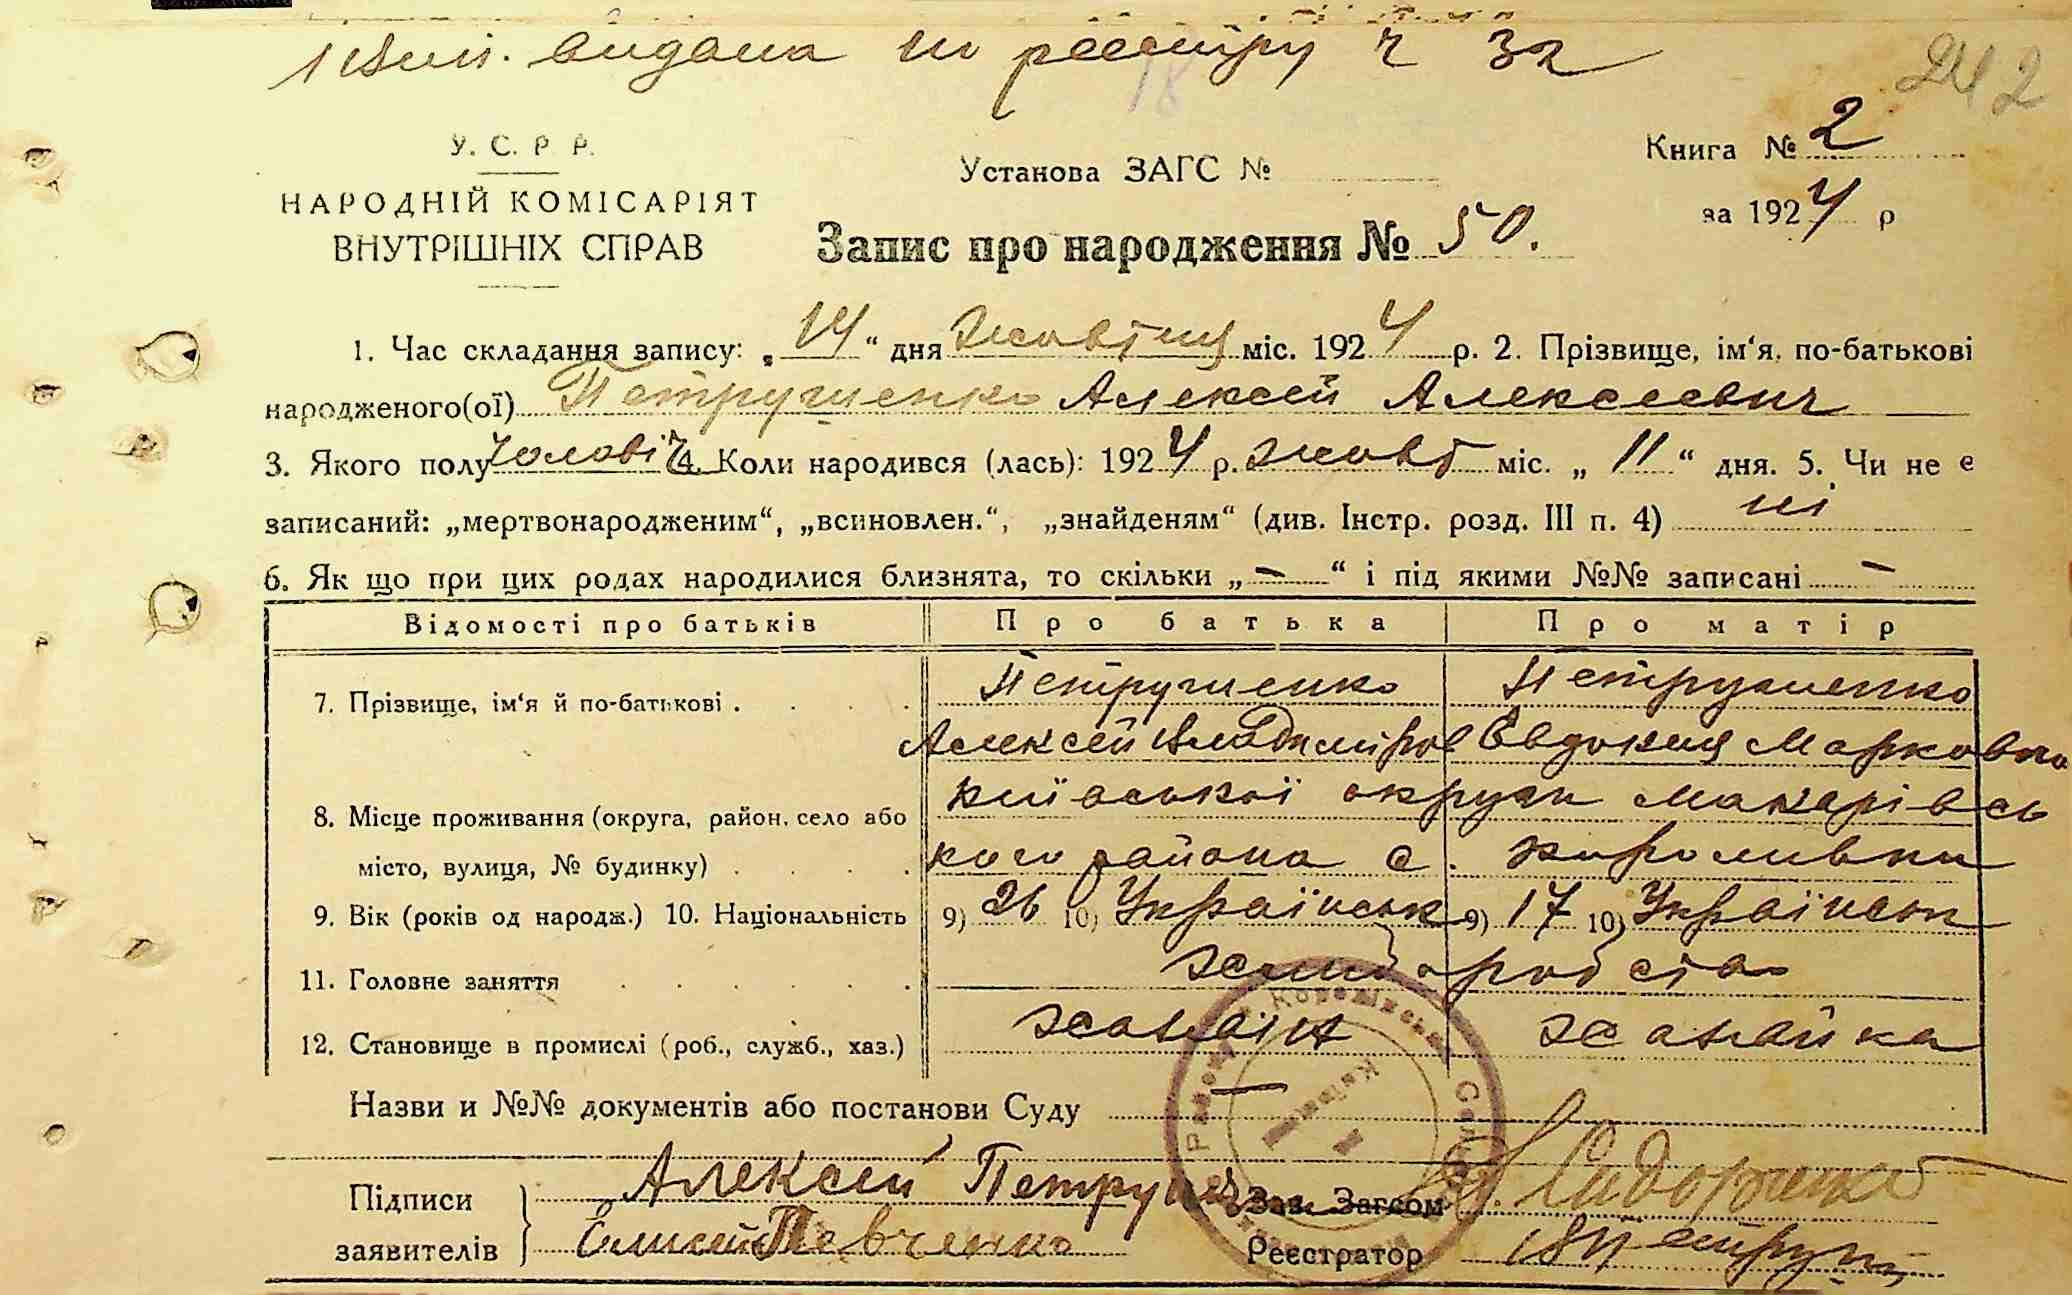 видана по реєстру ч 32
242
У. С. Р. Р.
НАРОДНІЙ КОМІСАРІЯТ
ВНУТРІШНІХ СПРАВ
Установа ЗАГС №
Книга № 2
за 1924 р
Запис про народження № 50.
1. Час складання запису: „14“ дня жовтня міс. 1924 р. 2. Прізвище, ім‘я, по-батькові
народженого(ої) Петрушенко Алексей Алексеевич
3. Якого полу чоловіч 4. Коли народився (лась): 1924 р. жовт міс. „11“ дня. 5. Чи не є
записаний: „мертвонародженим“, „всиновлен.“, „знайденям“ (див. Інстр. розд. III п. 4) ні
6. Як що при цих родах народилися близнята, то скільки „—“ і під якими №№ записані —
Відомості про батьків Про батька Про матір
7. Прізвище, ім‘я й по-батькові . Петрушенко Петрушенко
Алексей Владимиров Евдокия Марковна
8. Місце проживання (округа, район, село або Київської округи Макарівсь
місто, вулиця, № будинку) кого района с. Королівки
9. Вік (років од народж.) 10. Національність 9) 26 10) Українськ 9) 17 10) Українськ
11. Головне заняття хліборобство
12. Становище в промислі (роб., служб., хаз.) хазаїн хазайка
Назви и №№ документів або постанови Суду —
Підписи Алексей Петруш Зав. Загсом Сидоренко
заявителів Елисей Певченко Реєстратор